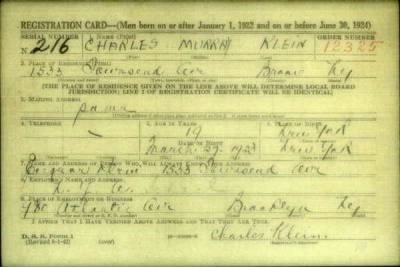 REGISTRATION CARD—(Men born on or after January 1, 1922 and on or before June 30, 1924)
SERIAL NUMBER 1. NAME (Print) ORDER NUMBER
216 CHARLES MURRAY KLEIN 12325
2. PLACE OF RESIDENCE (Print)
1533 Townsend Ave Bronx Ny
(THE PLACE OF RESIDENCE GIVEN ON THE LINE ABOVE WILL DETERMINE LOCAL BOARD
JURISDICTION; LINE 2 OF REGISTRATION CERTIFICATE WILL BE IDENTICAL)
3. MAILING ADDRESS
same
4. TELEPHONE 5. AGE IN YEARS 6. PLACE OF BIRTH
19 New York
DATE OF BIRTH
March 29, 1923 New York
7. NAME AND ADDRESS OF PERSON WHO WILL ALWAYS KNOW YOUR ADDRESS
Klein 1533 Townsend Ave
8. EMPLOYER'S NAME AND ADDRESS
9. PLACE OF EMPLOYMENT OR BUSINESS
Atlantic Ave Brooklyn Ny
I AFFIRM THAT I HAVE VERIFIED ABOVE ANSWERS AND THAT THEY ARE TRUE.
D. S. S. FORM 1
Charles Klein